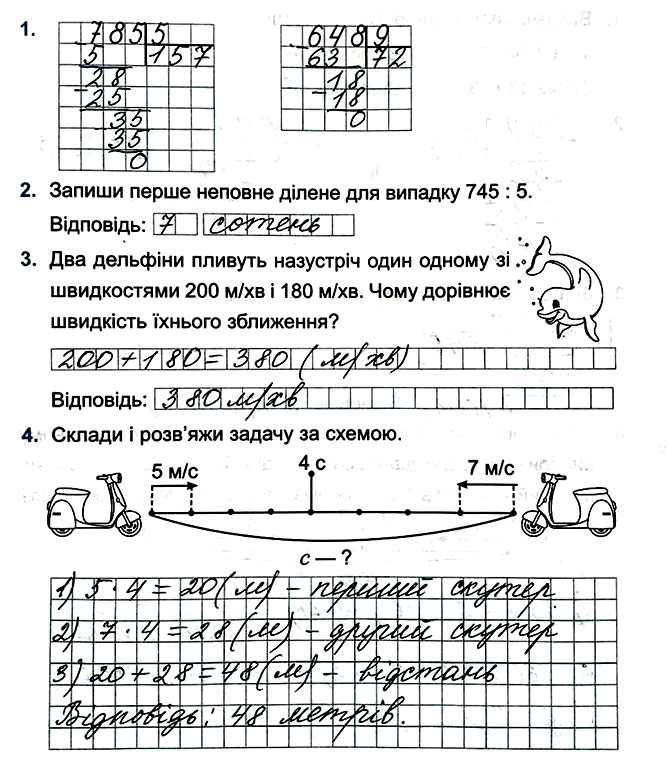 1.
785 5 648 9
5 157 63 72
28 18
25 18
35 0
35
0
2. Запиши перше неповне ділене для випадку 745 : 5.
Відповідь: 7 сотень
3. Два дельфіни пливуть назустріч один одному зі
швидкостями 200 м/хв і 180 м/хв. Чому дорівнює
швидкість їхнього зближення?
200 + 180 = 380 (м/хв)
Відповідь: 380 м/хв
4. Склади і розв'яжи задачу за схемою.
5 м/с 4 с 7 м/с
с — ?
1) 5 · 4 = 20 (м) – перший скутер
2) 7 · 4 = 28 (м) – другий скутер
3) 20 + 28 = 48 (м) – відстань
Відповідь: 48 метрів.